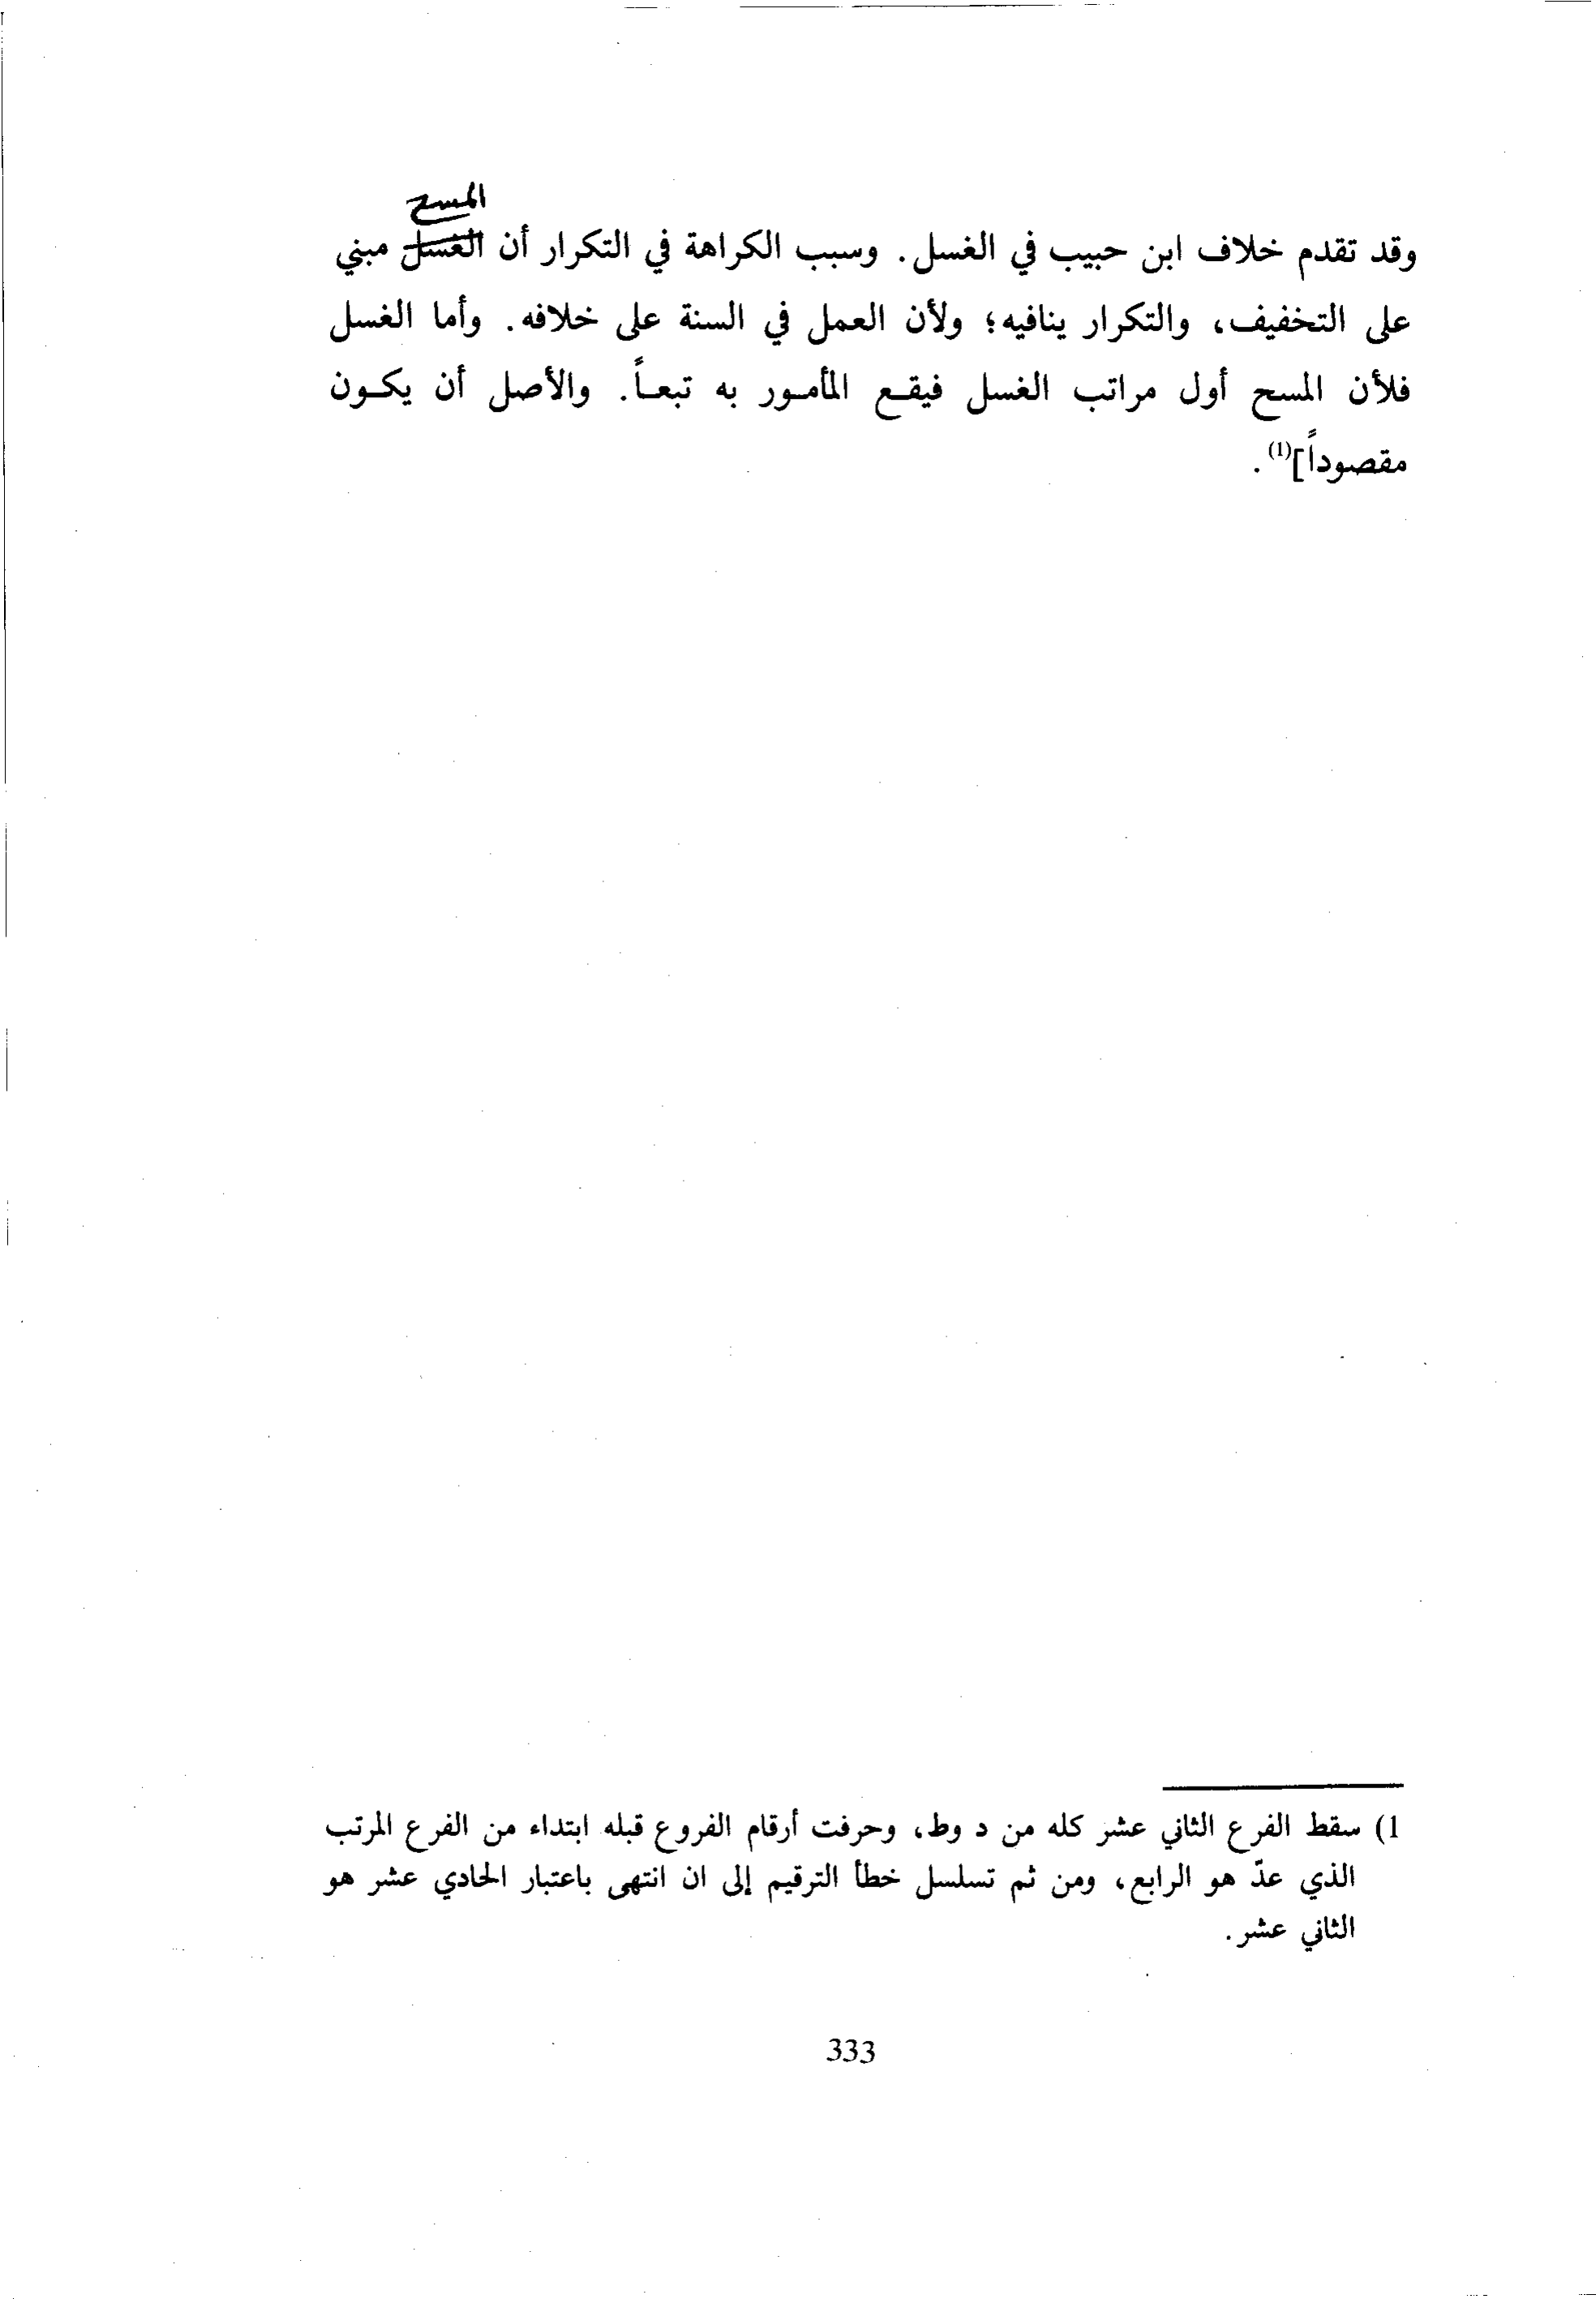 المسح
وقد تقدم خلاف ابن حبيب في الغسل. وسبب الكراهة في التكرار أن الغسل مبني
على التخفيف، والتكرار ينافيه؛ ولأن العمل في السنة على خلافه. وأما الغسل
فلأن المسح أول مراتب الغسل فيقع المأمور به تبعاً. والأصل أن يكون
مقصوداً](1).
1) سقط الفرع الثاني عشر كله من د وط، وحرفت أرقام الفروع قبله ابتداء من الفرع المرتب
الذي عدّ هو الرابع، ومن ثم تسلسل خطأ الترقيم إلى ان انتهى باعتبار الحادي عشر هو
الثاني عشر.
333